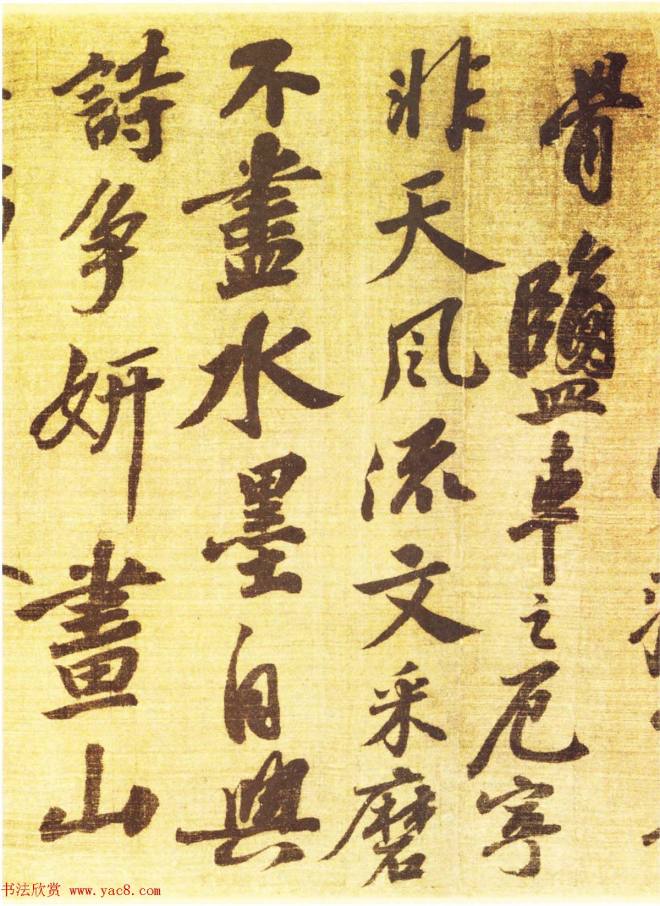 骨鹽車之厄寧
非天風流文采磨
不盡水墨自與
詩爭妍畫山
书法欣赏 www.yac8.com